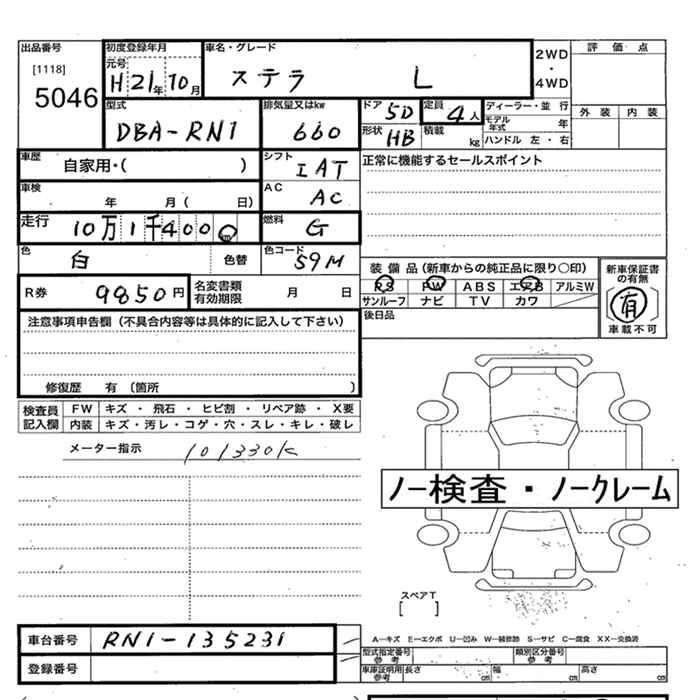 出品番号 [1118] 5046
初度登録年月 元号 H 21年 10月
車名・グレード ステラ L
2WD ・ 4WD
評価点
外装 内装
型式 DBA-RN1
排気量又はkw 660
ドア 5D
定員 4人
形状 HB
積載 kg
ディーラー・並行
モデル年式 年
ハンドル 左・右
車歴 自家用・( )
シフト IAT
正常に機能するセールスポイント
車検 年 月( 日)
AC AC
走行 10万1千400
燃料 G
色 白 色替
色コード 59M
装備品(新車からの純正品に限り○印)
PS PW ABS エアB アルミW
サンルーフ ナビ TV カワ
新車保証書の有無
有
車載不可
R券 9850円
名変書類有効期限 月 日
後日品
注意事項申告欄(不具合内容等は具体的に記入して下さい)
修復歴 有(箇所 )
検査員記入欄
FW キズ・飛石・ヒビ割・リペア跡・X要
内装 キズ・汚レ・コゲ・穴・スレ・キレ・破レ
メーター指示 101330K
ノー検査・ノークレーム
スペアT
[ ]
車台番号 RN1-135231
登録番号
A―キズ E―エクボ U―凹み W―補修跡 S―サビ C―腐食 XX―交換済
型式指定番号 参考
類別区分番号 参考
車庫証明用 参考 長さ cm 幅 cm 高さ cm